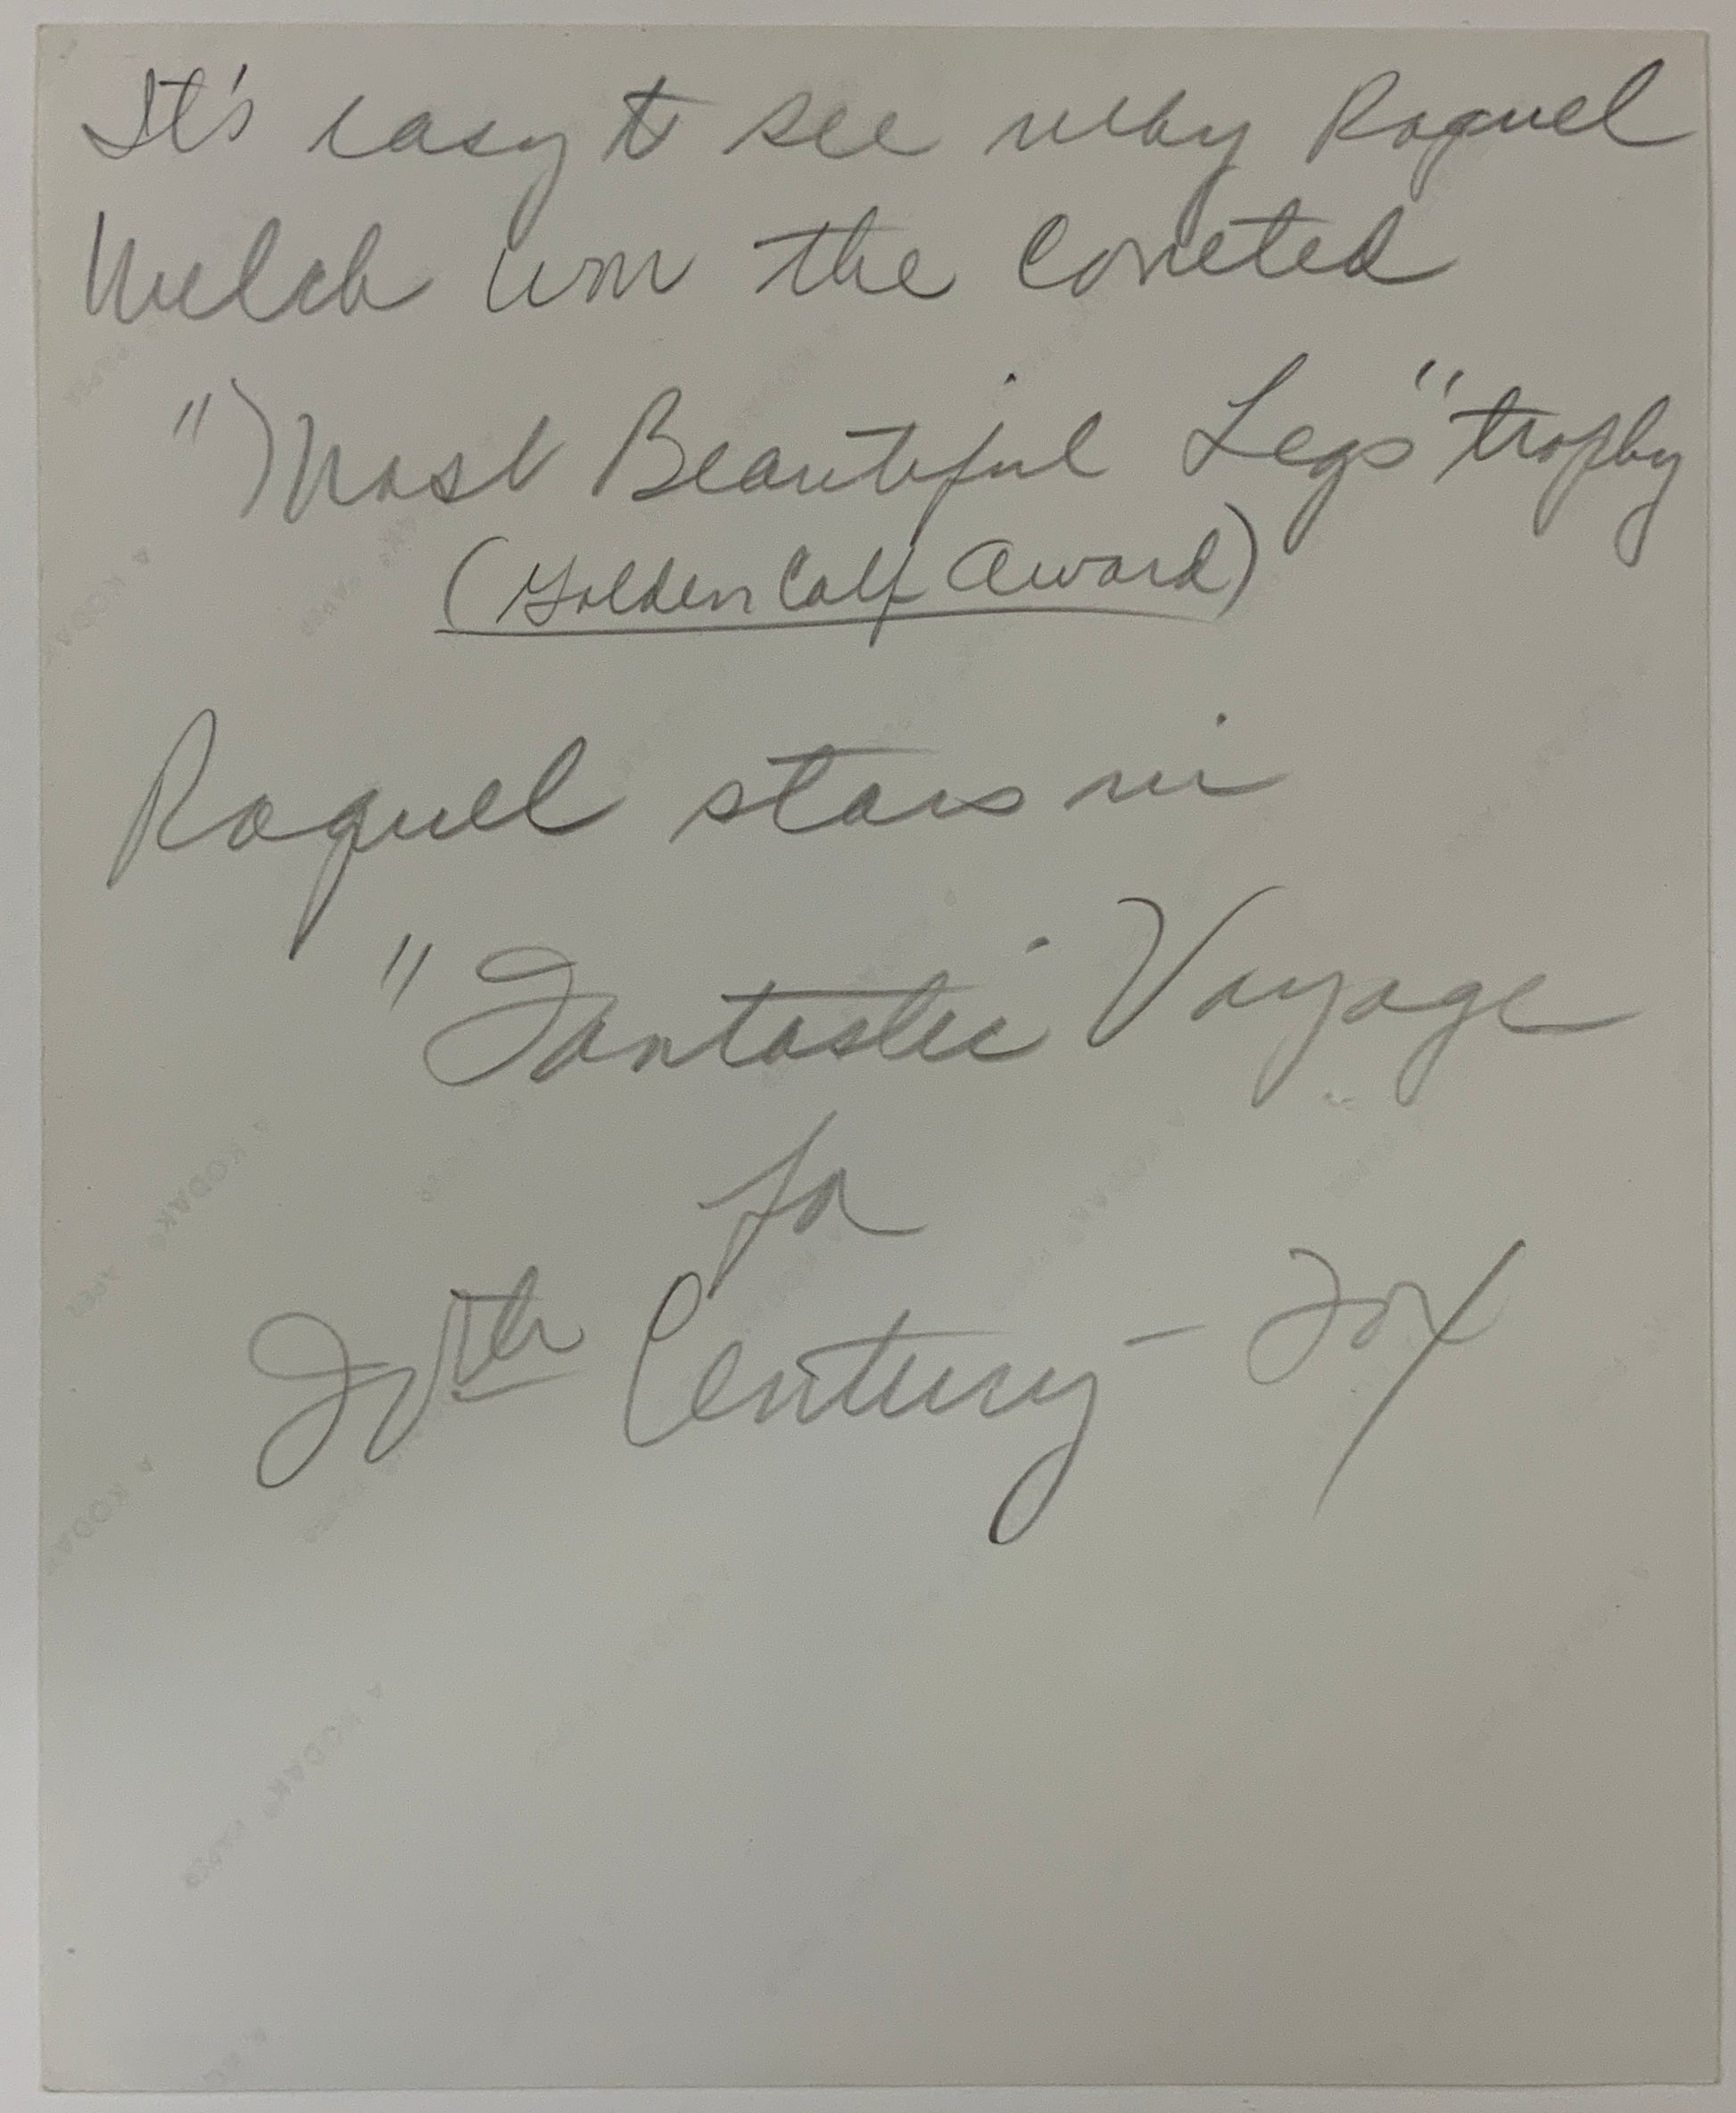 It's easy to see why Raquel
Welch won the coveted
"Most Beautiful Legs" trophy
(Golden Calf Award)
Raquel stars in
"Fantastic Voyage
for
20th Century - Fox
A KODAK PAPER
A KODAK PAPER
A KODAK PAPER